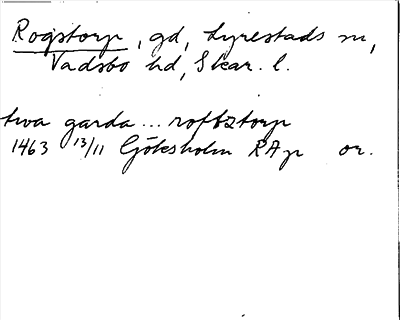 Rogstorp, gd, Lyrestads sn,
Vadsbo hd, Skar. l.
twa garda... roffztorp
1463 13/11 Göksholm RAp or.